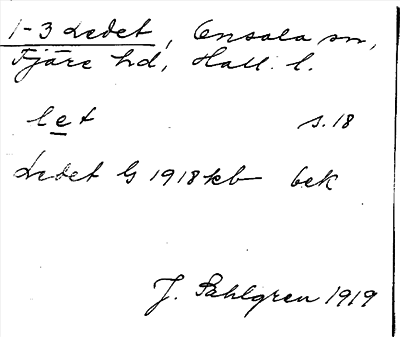 1-3 Ledet, Onsala sn,
Fjäre hd, Hall. l.
let s.18
Ledet G 1918 kb bek
J. Sahlgren 1919